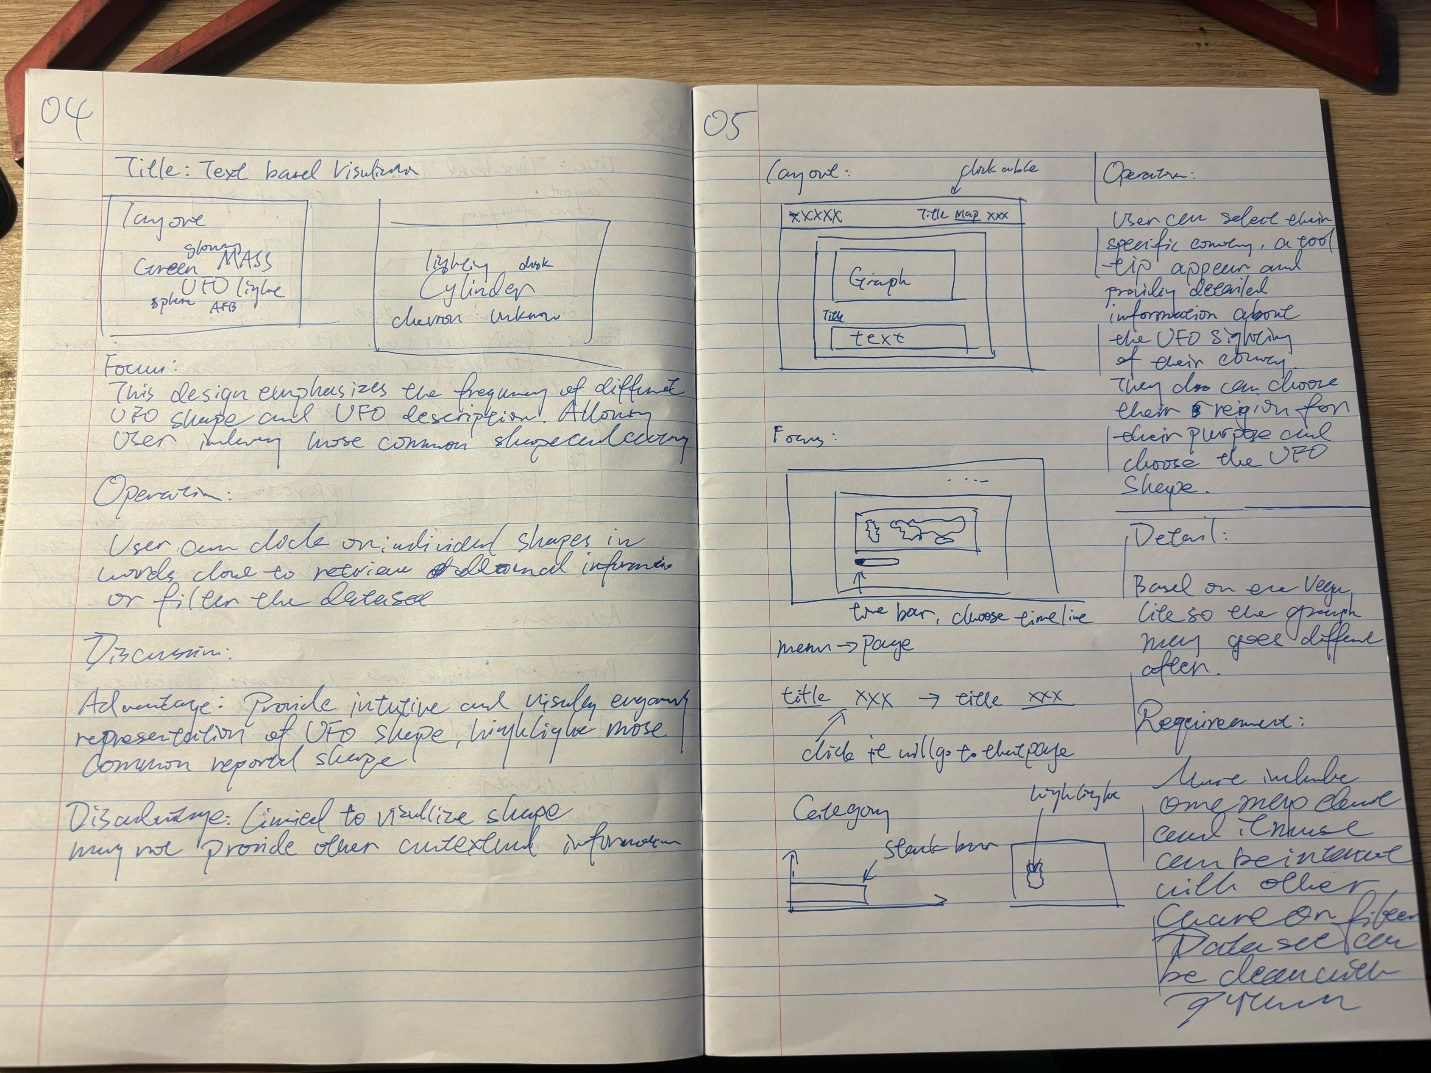 04
Title: Text based Visulizaon
Layout
glowing
Green MASS
UFO lighe
sphere AFB
lighting disk
Cylinder
chevron unknow
Focus:
This design emphasizes the frequncy of different
UFO shape and UFO description. Allowing
User most common shape and
Operation:
User can click on individul shapes in
words cloud to retrieve information
or filter the dataset
Discussion:
Advantage: Provide intuitive and visully engaging
representation of UFO shape, highlighe most
Common reported shape
Disadvantage: Limied to visulize shape
may not provide other contextual information
05
Layout: clickable
xxxxx Title Map xxx
Graph
Title
text
Focus:
time bar, choose timeline
menu → page
title xxx → title xxx
click it will go to that page
Category highlighe
stack bar
Operation:
User can select their
specific country, a tool
tip appear and
providing detailed
information about
the UFO sighting
of their country
They can choose
their region for
their purpose and
choose the UFO
Shape.
Detail:
Based on the Vega
lite so the graph
may goes different
after.
Requirement:
Must include
one map
and it must
can be interact
with other
Chart or filter
Dataset can
be clean with